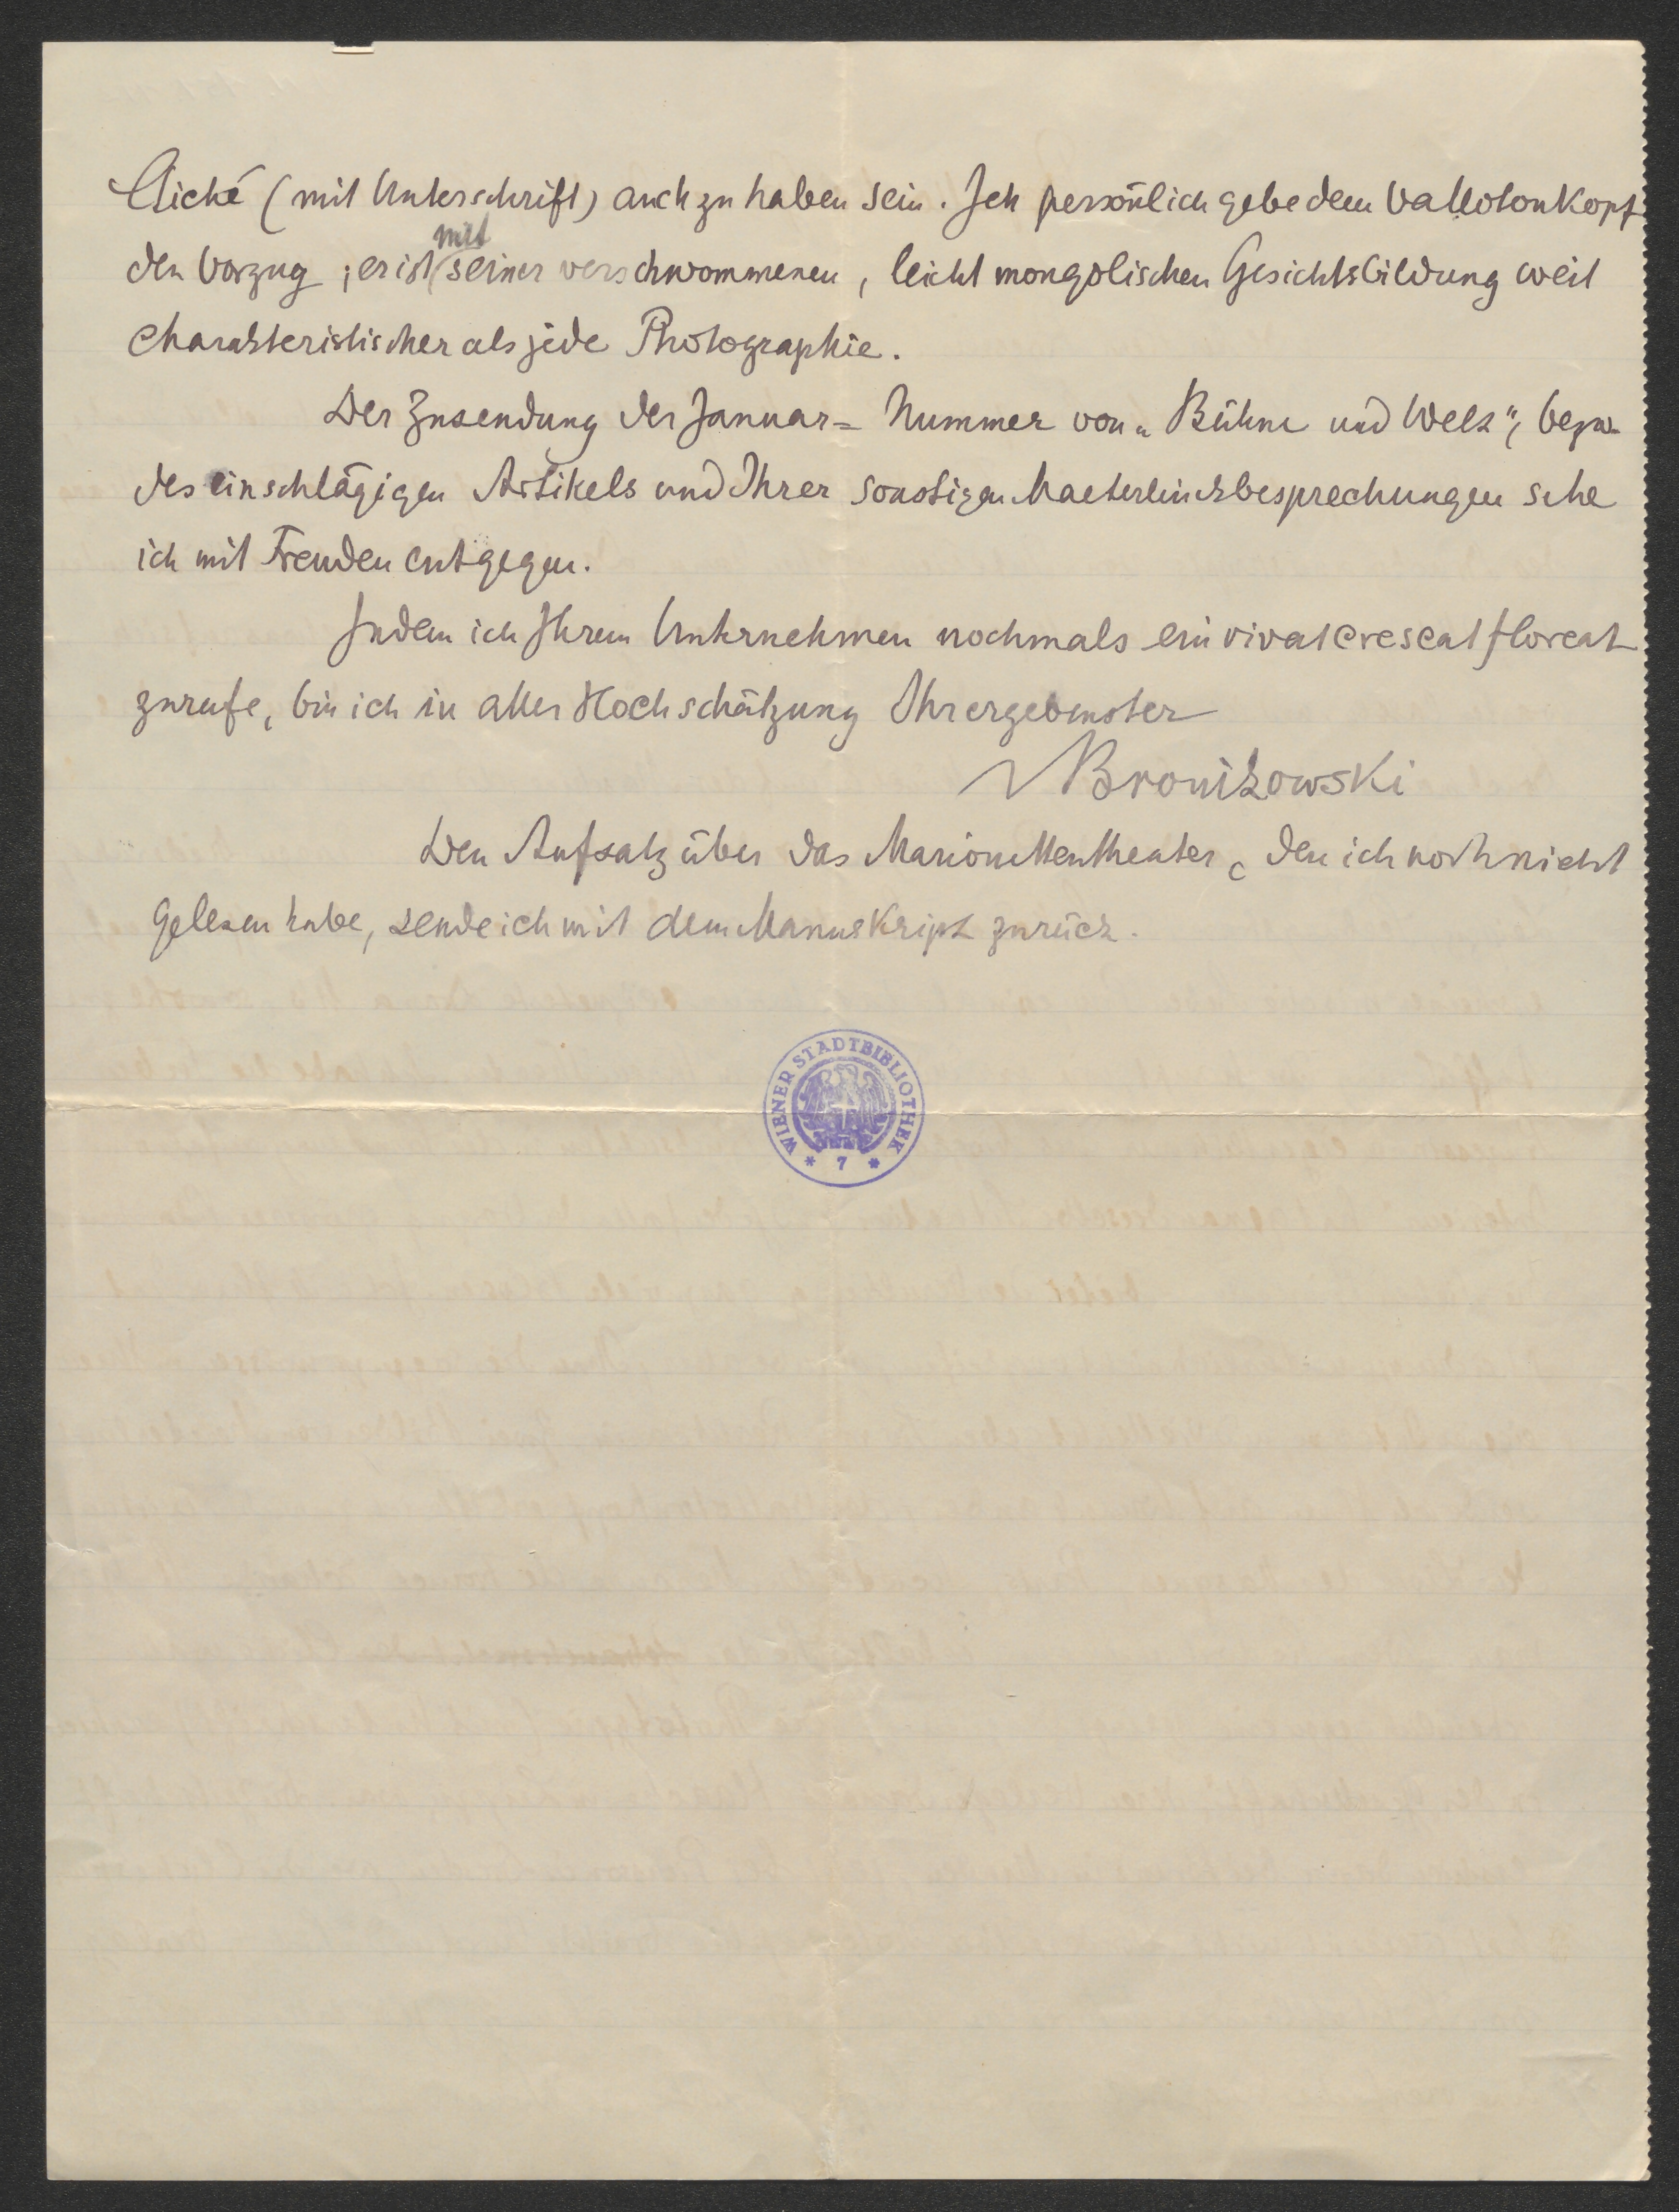 Cliché (mit Unterschrift) auch zu haben sein. Ich persönlich gebe dem Vallotonkopf
mit
den Vorzug; er ist seiner verschwommenen, leicht mongolischen Gesichtsbildung weit
charakteristischer als jede Photographie.
Der Zusendung der Januar= Nummer von „Bühne und Welt“, bezw.
des einschlägigen Artikels und Ihrer sonstigen Maeterlinckbesprechungen sehe
ich mit Freuden entgegen.
Indem ich Ihrem Unternehmen nochmals ein vivat crescat floreat
zurufe, bin ich in aller Hochschätzung Ihr ergebenster
vBronikowski
Den Aufsatz über das Marionettentheater, den ich noch nicht
gelesen habe, sende ich mit dem Manuskript zurück.
WIENER STADTBIBLIOTHEK
* 7 *